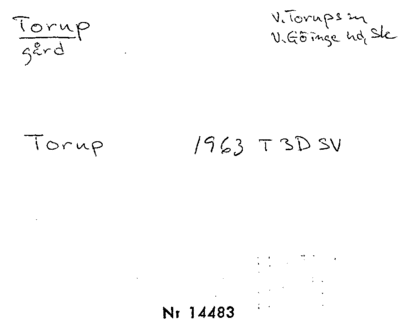 Torup
gård
V. Torups sn
V. Göinge hd, Sk
Torup 1963 T 3D SV
Nr 14483